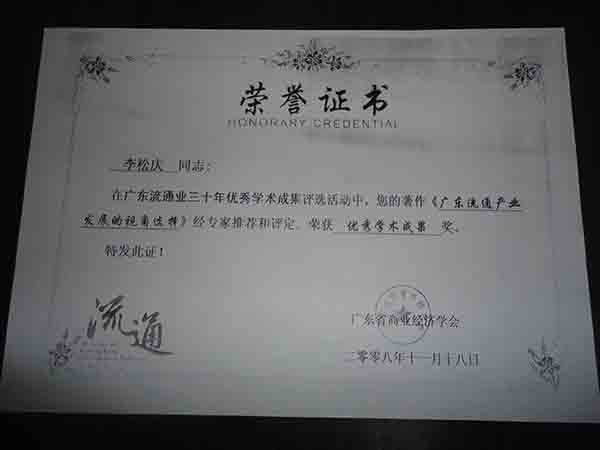 荣誉证书
HONORARY CREDENTIAL
李松庆 同志：
在广东流通业三十年优秀学术成集评选活动中，您的著作《广东流通产业
发展的视角选择》经专家推荐和评定，荣获 优秀学术成果 奖。
特发此证！
流通
广东省商业经济学会
二零零八年十一月十八日